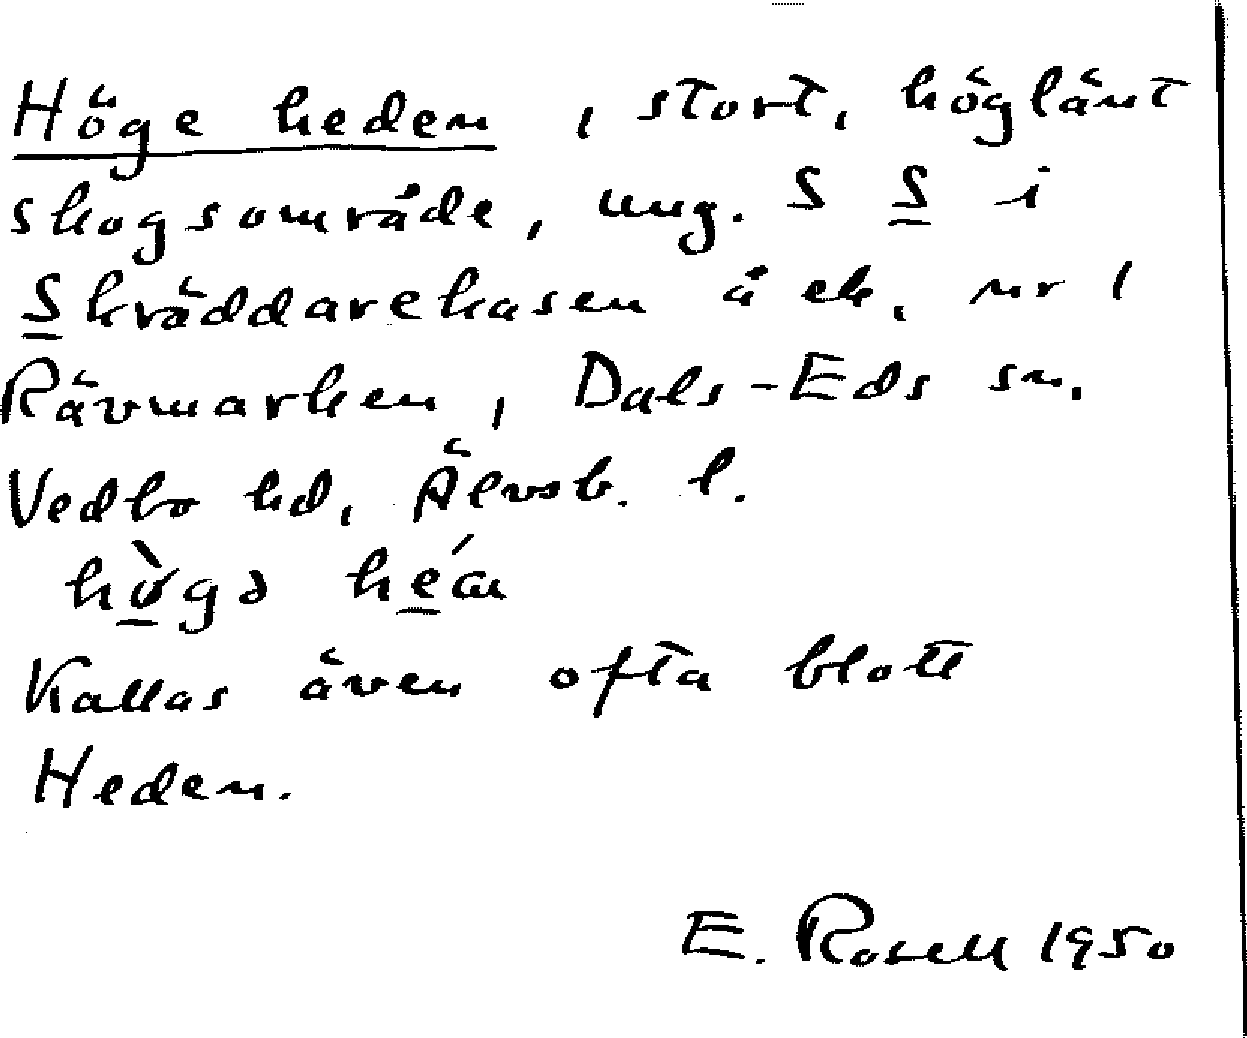 Höge heden, stort, höglänt
skogsområde, ung. S S i
Skräddarekasen å ek. nr 1
Rävmarken, Dals-Eds sn.
Vedbo hd, Älvsb. l.
hö̀gə héan
Kallas även ofta blott
Heden.
E. Rosell 1950